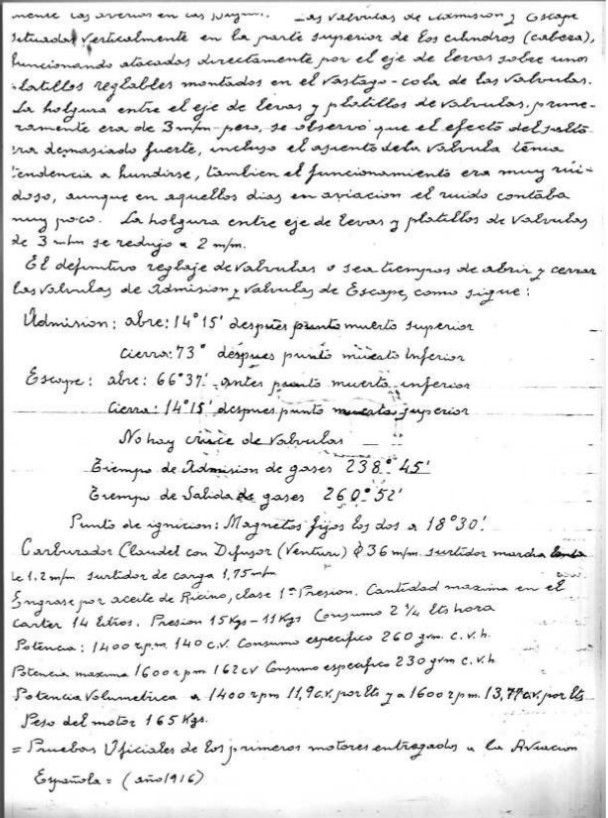 mente las averias en las . Las Valvulas de Admision y Escape
situadas verticalmente en la parte superior de los cilindros (cabeza),
funcionando atacadas directamente por el eje de levas sobre unos
platillos reglables montados en el vastago-cola de las valvulas.
La holgura entre el eje de levas y platillos de valvulas, prime-
ramente era de 3 m/m pero, se observó que el efecto del salto
era demasiado fuerte, incluso el asiento de la valvula tenia
tendencia a hundirse, tambien el funcionamiento era muy rui-
doso, aunque en aquellos dias en aviacion el ruido contaba
muy poco. La holgura entre eje de levas y platillos de valvulas
de 3 m/m se redujo a 2 m/m.
El definitivo reglaje de valvulas o sea tiempos de abrir y cerrar
las valvulas de Admision y valvulas de Escape, como sigue:
Admision: abre: 14° 15' despues punto muerto superior
cierra: 73° despues punto muerto Inferior
Escape: abre: 66° 37' antes punto muerto inferior
Cierra: 14° 15' despues punto muerto superior
No hay cruce de valvulas
Tiempo de Admision de gases 238° 45'
Tiempo de Salida de gases 260° 52'
Punto de ignicion: Magnetos fijos los dos a 18° 30'.
Carburador Claudel con Difusor (Venturi) ϕ 36 m/m. surtidor marcha lenta
de 1.2 m/m surtidor de carga 1,75 m/m
Engrase por aceite de Ricino, clase 1ª Presion. Cantidad maxima en el
carter 14 litros. Presion 15 Kgs - 11 Kgs Consumo 2 1/4 lts hora
Potencia: 1400 r.p.m. 140 c.v. Consumo especifico 260 grm. c.v.h.
Potencia maxima 1600 r.p.m 162 cv Consumo especifico 230 grm c.v.h
Potencia Volumetrica a 1400 rpm 11,9 c.v. por lts y a 1600 rpm. 13,77 c.v. por lts
Peso del motor 165 Kgs.
= Pruebas Oficiales de los primeros motores entregados a la Aviacion
Española = (año 1916)